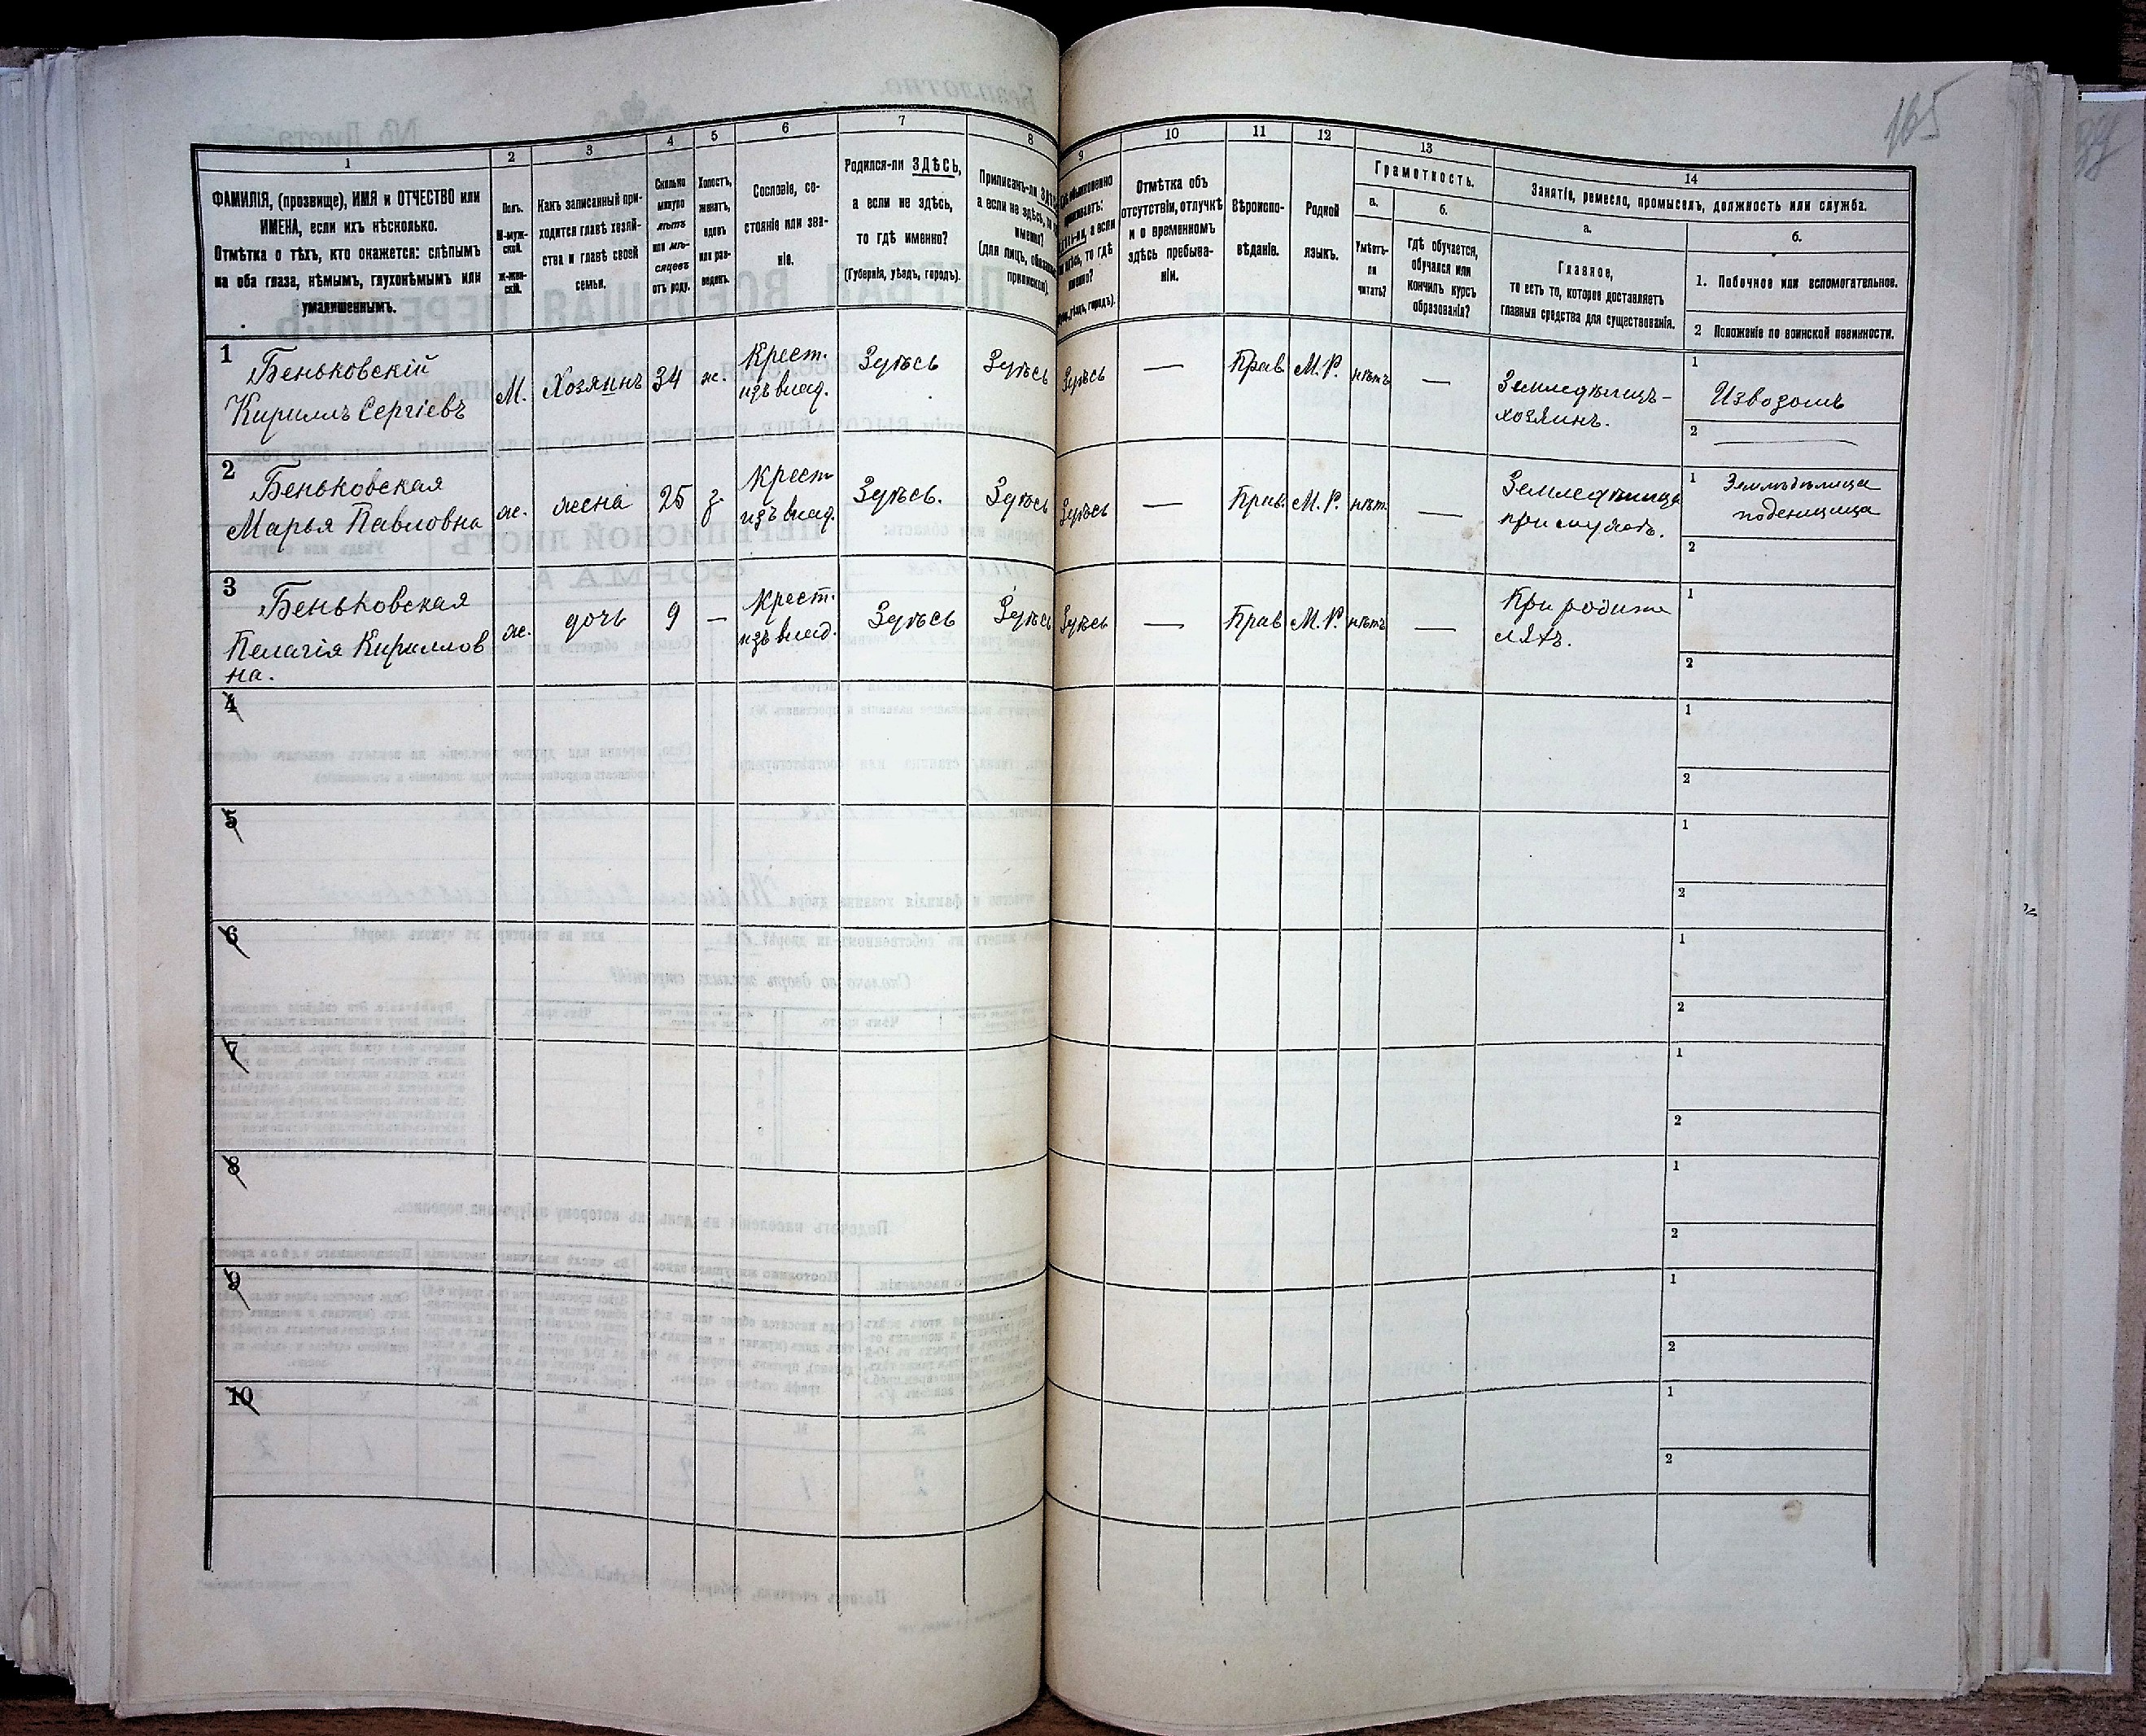 165
1
2
3
4
5
6
7
8
ФАМИЛІЯ, (прозвище), ИМЯ и ОТЧЕСТВО или
ИМЕНА, если ихъ нѣсколько.
Отмѣтка о тѣхъ, кто окажется: слѣпымъ
на оба глаза, нѣмымъ, глухонѣмымъ или
умалишеннымъ.
Полъ.
М-муж-
ской.
Ж-жен-
скій.
Какъ записанный при-
ходится главѣ хозяй-
ства и главѣ своей
семьи.
Сколько
минуло
лѣтъ
или мѣ-
сяцевъ
отъ роду.
Холостъ,
женатъ,
вдовъ
или раз-
веденъ.
Сословіе, со-
стояніе или зва-
ніе.
Родился-ли ЗДѢСЬ,
а если не здѣсь,
то гдѣ именно?
(Губернія, уѣздъ, городъ).
Приписанъ-ли
а если не здѣсь,
именно?
(для лицъ,
припискою).
9
10
11
12
13
14
Отмѣтка объ
отсутствіи, отлучкѣ
и о временномъ
здѣсь пребыва-
ніи.
Вѣроиспо-
вѣданіе.
Родной
языкъ.
Грамотность.
а.
Умѣетъ-
ли
читать?
б.
гдѣ обучается,
обучался или
кончилъ курсъ
образованія?
Занятіе, ремесло, промыселъ, должность или служба.
а.
Главное,
то есть то, которое доставляетъ
главныя средства для существованія.
б.
1. Побочное или вспомогательное.
2 Положеніе по воинской повинности.
1
Беньковскій
Кириллъ Сергіевъ
М.
Хозяинъ
34
ж.
Крест.
изъ влад.
Здѣсь
Здѣсь
Здѣсь
—
Прав
М. Р.
нѣтъ
—
Земледѣлецъ-
хозяинъ.
1
Извозомъ
2
2
Беньковская
Марья Павловна
ж.
жена
25
з
Крест
изъ влад.
Здѣсь.
Здѣсь
Здѣсь
—
Прав.
М. Р.
нѣт.
—
Земледѣлица
при мужѣ.
1
Земледѣлица
поденщица
2
3
Беньковская
Пелагія Кириллов
на.
ж.
дочь
9
—
Крест.
изъ влад.
Здѣсь
Здѣсь
Здѣсь
—
Прав
М. Р.
нѣтъ
—
При родите
ляхъ.
1
2
4
1
2
5
1
2
6
1
2
7
1
2
8
1
2
9
1
2
10
1
2